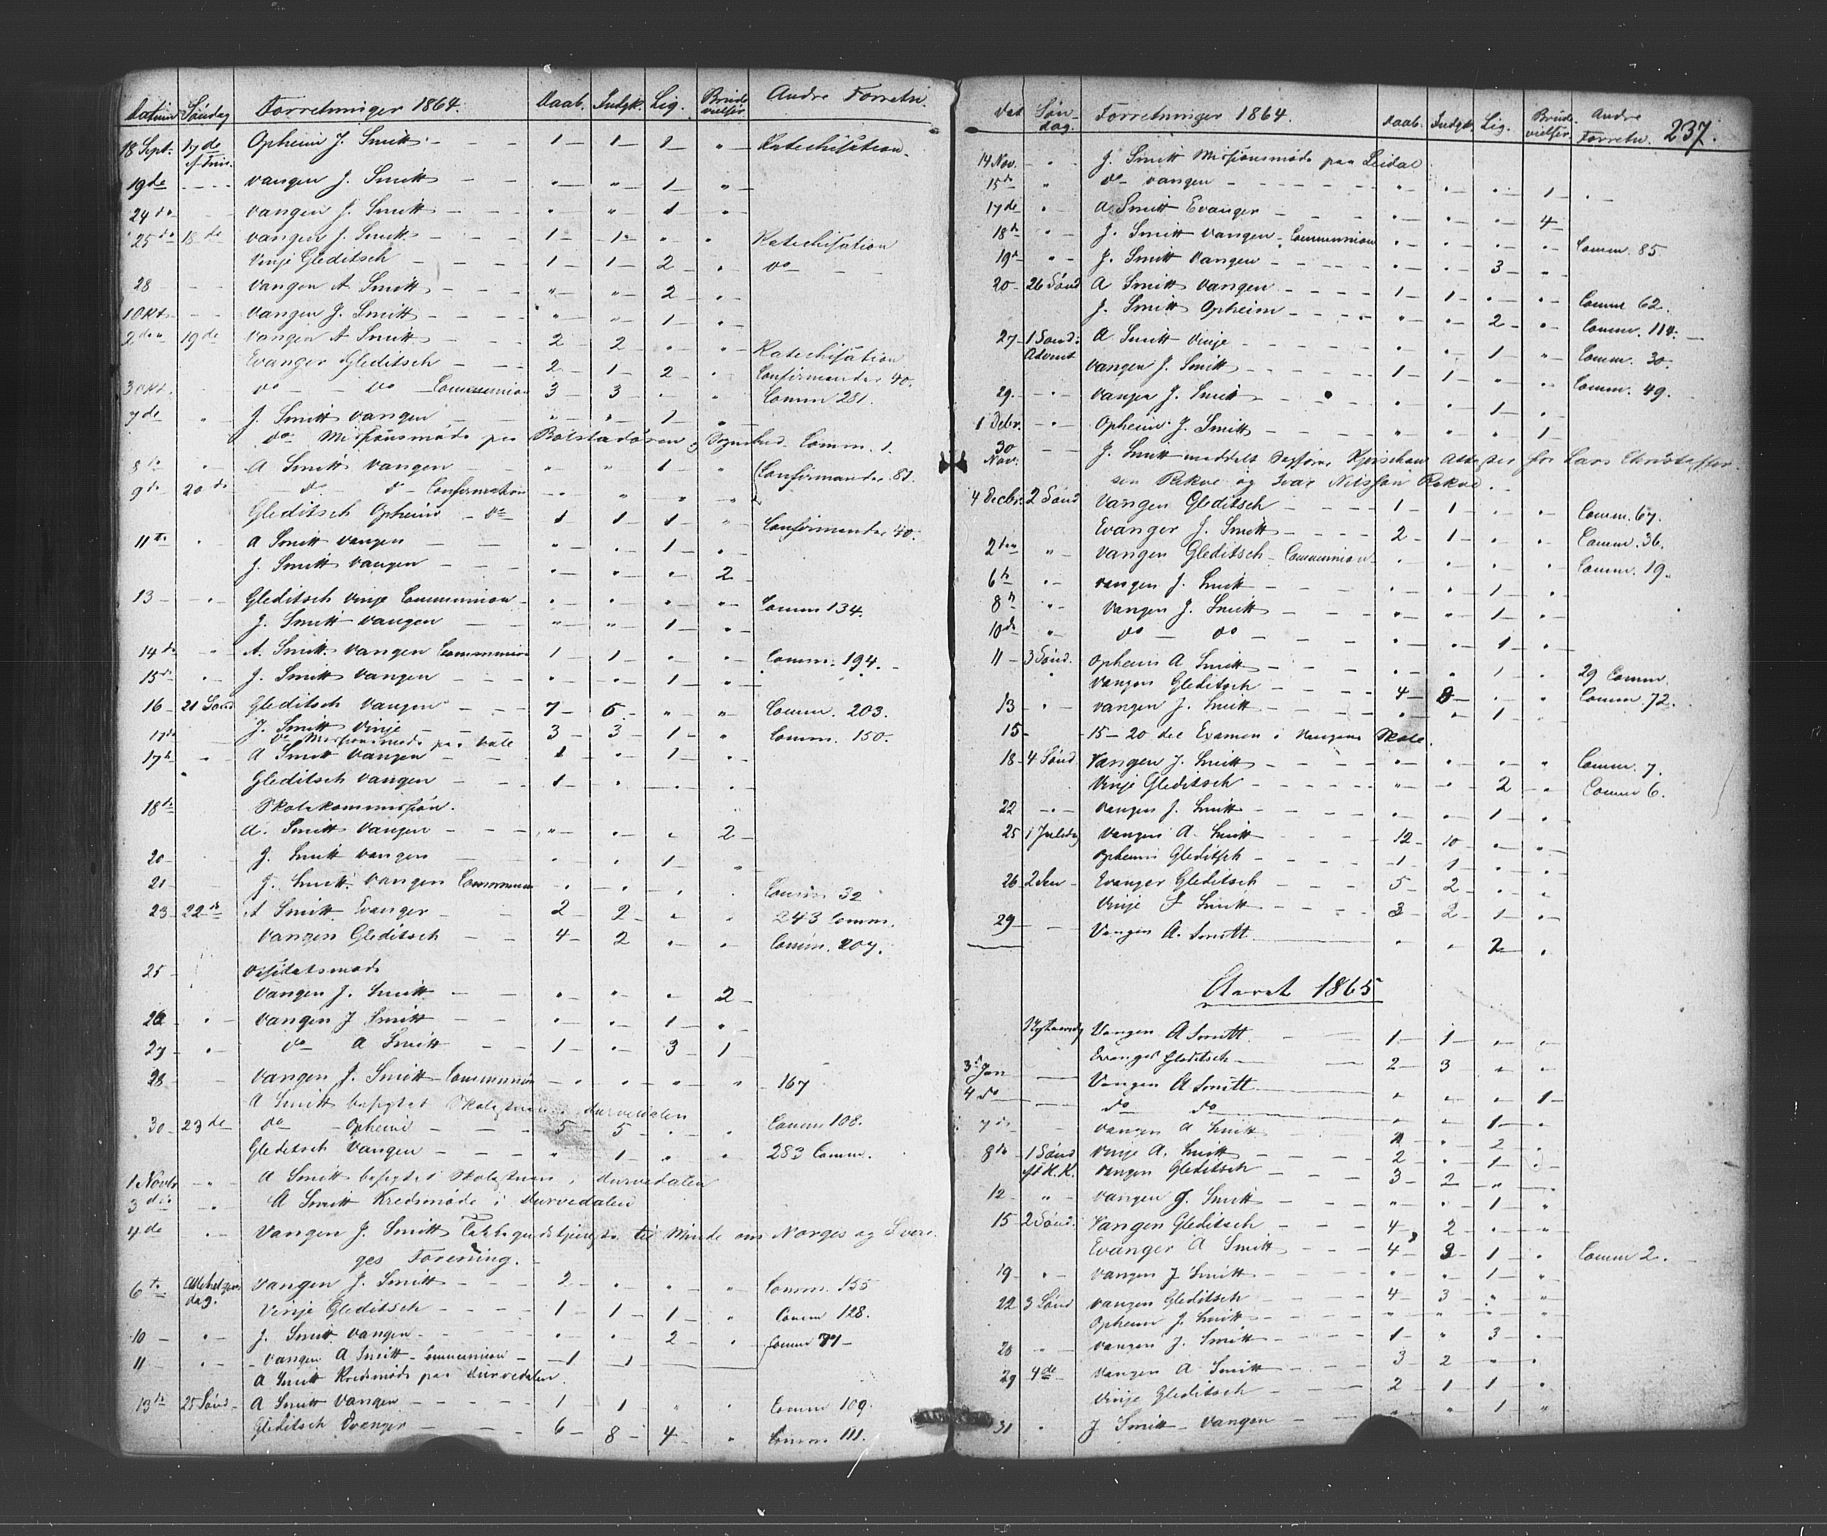 Datum Søndag Forretninger 1864. Daab. Indgk. Lig. Brudevielser Andre Forretn.
18 Sept. 17de f. Trin. Opheim J. Smitt 1 1 1 " Katechisation
19de vangen J. Smitt " " 1 "
24de vangen J. Smitt " " 1 "
25de 18de vangen J. Smitt 1 1 " " Katechisation
Vinje Gleditsch 1 1 2 " do
28 vangen A Smitt " " 2 "
1 Okt. vangen J. Smitt " " 1 "
2den 19de vangen A Smitt 2 2 " "
Evanger Gleditsch 2 1 2 " Katechisation Confirmander 40.
3 Okt. do do Communion 3 3 " " Comm 281.
7de " J. Smitt vangen " " 1 "
do Missionsmøde paa Bolstadøren Comm. 1.
8de " A Smitt vangen " " 1 " Confirmander 81.
9de 20de do do Confirmation " " " "
Gleditsch Opheim do 1 1 1 " Confirmander 40.
11te " A Smitt vangen " " 1 "
J. Smitt vangen " " " 2
13 " Gleditsch Vinje Communion " " " " Comm 134.
J. Smitt vangen " " 1 "
14de " A. Smitt vangen Communion 1 1 " " Comm. 194.
15de " J. Smitt vangen " " 1 "
16 21 Sønd Gleditsch vangen 7 5 " " Comm. 203.
J. Smitt Vinje 3 3 1 " Comm. 150.
17de do Missionsmøde paa
17de " A Smitt vangen 1 " 1 "
Gleditsch vangen 1 "
18de Skolekommission.
A. Smitt vangen " " " 2
20 J. Smitt vangen " " 1 "
21 J. Smitt vangen Communion " " " " Comm. 32
23 22de A Smitt Evanger 2 2 " " 243 Comm.
Vangen Gleditsch 4 2 " " Comm. 207.
25 Visitatsmøde
Vangen J. Smitt " " " 2
26 " Vangen J Smitt " " 1 "
27 " do A Smitt 1 " 3 1
28 Vangen J. Smitt Communion " " " " 167
A Smitt besøgtet Skolestuen i
30 23de do Opheim 5 5 " " Comm 108.
Gleditsch Vangen " 1 " " 283 Comm.
1 Novbr " A Smitt besøgtet Skolestuen i
3die " A Smitt Kredsmøde i
4de " Vangen J. Smitt Takkegudstjeneste til Minde om Norges og Sveri-
ges Forening.
6te Allehelgensdag. Vangen J. Smitt 2 " " " Comm. 155
Vinje Gleditsch 1 1 1 " Comm 128.
10 " J. Smitt Vangen " " 2 " Comm 77
11 " Vangen A Smitt Communion 1 1
A Smitt Kredsmøde paa
13de 25 Sønd A Smitt Vangen 1 1 " " Comm 109.
Gleditsch Evanger 6 8 4 " Comm. 111.
Dat Søndag. Forretninger 1864. Daab. Indgk Lig. Brudevielser. Andre Forretn. 237.
14 Nov. " J. Smitt Missionsmøde paa
15de " do vangen " " " 1
17de " A. Smitt Evanger " " " 4
18de " J. Smitt Vangen Communion " " " " Comm. 85
19de " J. Smitt Vangen " " 3 "
20 26 Sønd A Smitt Vangen 1 1 " " Comm 62.
J. Smitt Opheim " " 2 " Comm. 114.
27 1 Sønd: Advent A Smitt Vinje " " 1 " Comm. 30.
Vangen J. Smitt 1 1 " " Comm. 49.
29. Vangen J. Smitt " " 1 "
1 Decbr. Opheim J. Smitt " " " 1
30 Nov. J. Smitt meddelt Attester for Lars Christoffer-
sen Rekve og Ivar Nilssøn Rekve.
4 Decbr. 2 Sønd Vangen Gleditsch 1 1 " " Comm. 67.
Evanger J. Smitt 2 1 " " Comm. 36.
" Vangen Gleditsch Communion " " " " Comm. 19.
6te " Vangen J. Smitt " " 1 "
8de " Vangen J. Smitt " " 1 "
10de " do do " " 1 "
11 3 Sønd. Opheim A Smitt " " 1 " 29 Comm.
Vangen Gleditsch 4 " " Comm. 72.
13 " Vangen J. Smitt " " 1 "
15 15 – 20 de Examen i Vangens Skole.
18 4 Sønd. Vangen J. Smitt " " " " Comm. 7.
Vinje Gleditsch " " 2 " Comm 6.
22 Vangen J. Smitt " " 1 "
25 1 Juledag Vangen A. Smitt 12 10 " "
Opheim Gleditsch 1 1 " "
26 2den Evanger Gleditsch 5 2 " "
Vinje J Smitt 3 2 1 "
29 Vangen A. Smitt " " 2 "
Aaret 1865
Nytaarsdg Vangen A Smitt 1 1 " "
Evanger Gleditsch 2 3 " "
3d Jan Vangen A Smitt " " " 1
4 do do do " " 1 "
7de Vangen A Smitt " 2 "
8de 1 Sønd eft H.K. Vinje A. Smitt 2 " 1 "
Vangen Gleditsch 3 2 " "
12 " Vangen J. Smitt " " 1 "
15 2 Sønd. Vangen Gleditsch 4 2 " "
Evanger A Smitt 4 3 1 " Comm 2.
19 " Vangen J Smitt " " 1 "
22 3 Sønd Vangen Gleditsch 4 3 " "
Opheim J. Smitt " " " "
Vangen J. Smitt 1 " 3 "
29 4de Vangen A Smitt 3 2 " "
Vinje Gleditsch 2 1 1 "
31 " J Smitt Vangen " " 1 "